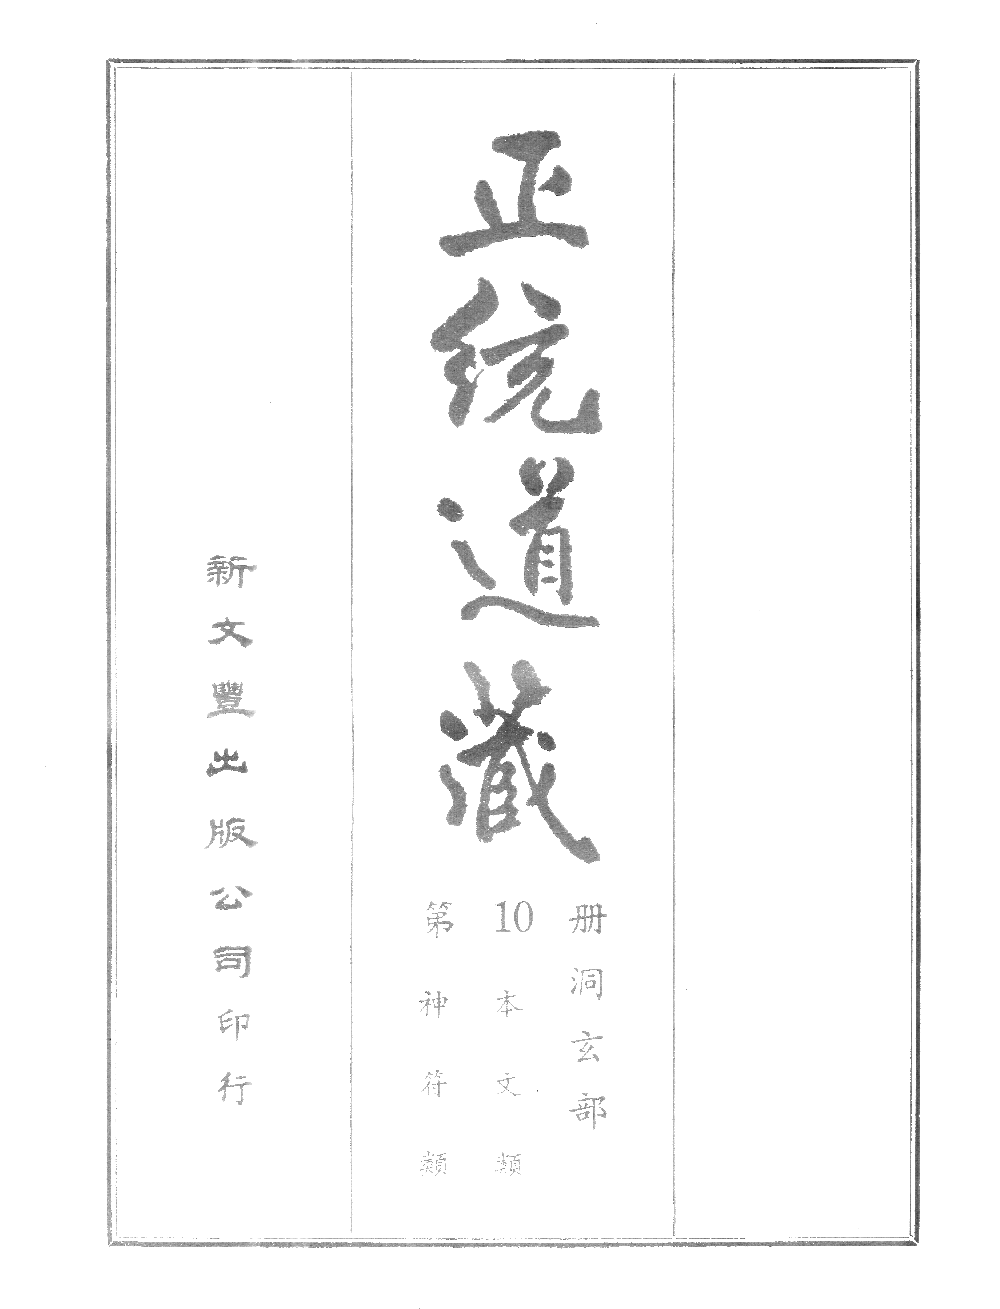 正統道藏
第10册
洞玄部
本文類
神符類
新文豐出版公司印行